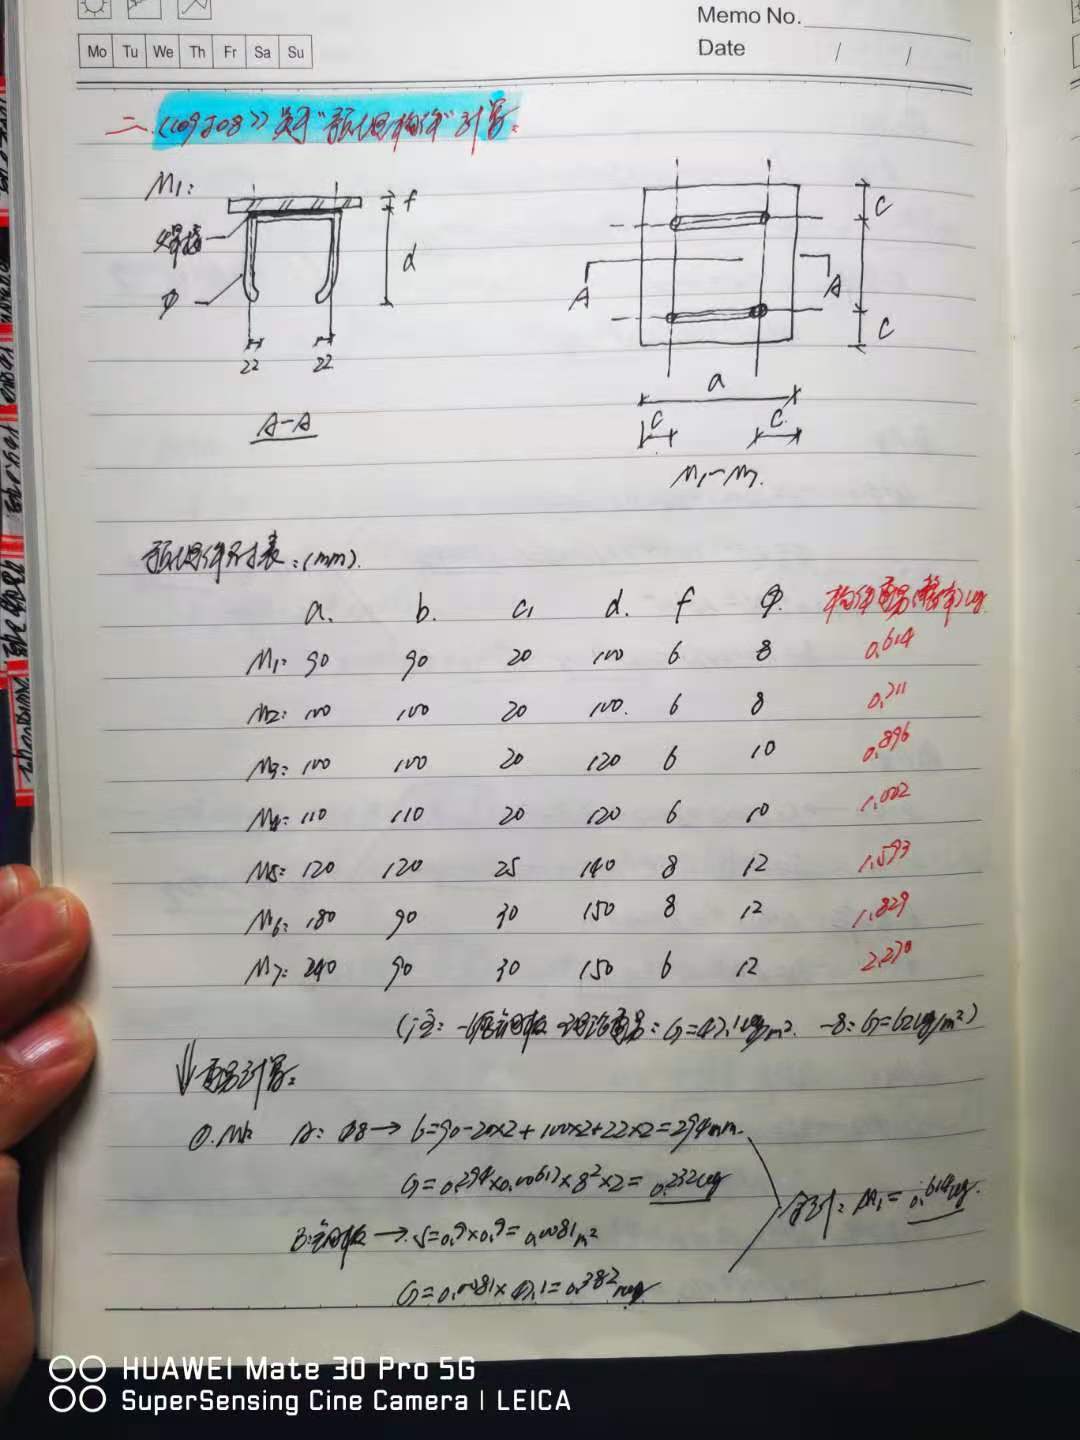 Memo No.
Mo Tu We Th Fr Sa Su
Date / /
二.《09J08》关于"预埋构件"计算:
M1:
f
焊接
d
φ
22 22
A-A
c
A A
c
a
c c
M1-M7.
预埋件尺寸表:(mm).
a. b. c1 d. f φ. 构件重量(榀单)kg
M1: 90 90 20 100 6 8 0.614
M2: 100 100 20 100. 6 8 0.711
M3: 100 100 20 120 6 10 0.896
M4: 110 110 20 120 6 10 1.002
M5: 120 120 25 140 8 12 1.593
M6: 180 90 30 150 8 12 1.829
M7: 240 90 30 150 6 12 2.270
(注: -6厚钢板 理论重量: G=47.1kg/m². -8: G=62kg/m²)
重量计算:
①. M1: A: φ8→ L=90-20×2+100×2+22×2=294mm.
G=0.294×0.00617×8²×2=0.232kg
合计: M1=0.614kg.
B:钢板→ S=0.9×0.9=0.0081m²
G=0.0081×47.1=0.382kg
HUAWEI Mate 30 Pro 5G
SuperSensing Cine Camera | LEICA